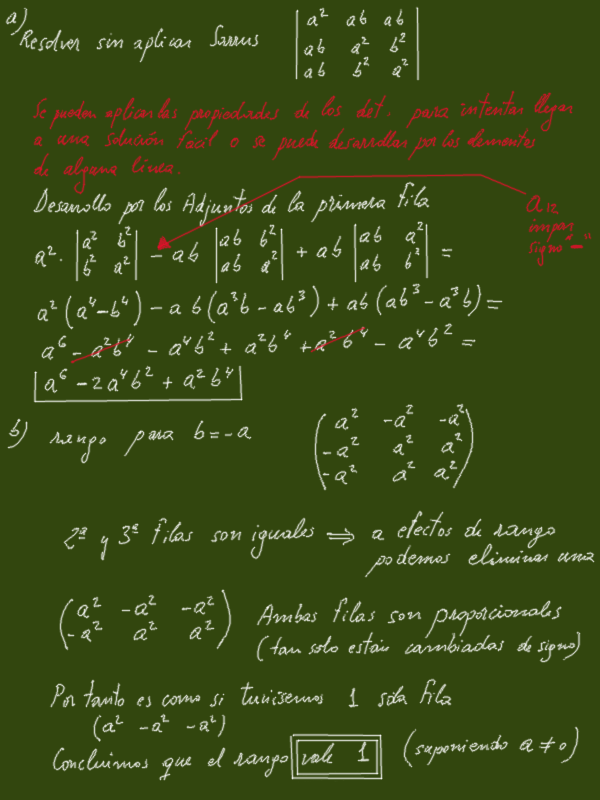 a) Resolver sin aplicar Sarrus | a² ab ab |
| ab a² b² |
| ab b² a² |
Se pueden aplicar las propiedades de los det. para intentar llegar
a una solución fácil o se puede desarrollar por los elementos
de alguna línea.
Desarrollo por los Adjuntos de la primera fila
a₁₂
impar
signo "−"
a² · | a² b² | − ab | ab b² | + ab | ab a² | =
| b² a² | | ab a² | | ab b² |
a² (a⁴−b⁴) − ab (a³b − ab³) + ab (ab³ − a³b) =
a⁶ − a²b⁴ − a⁴b² + a²b⁴ + a²b⁴ − a⁴b² =
a⁶ − 2a⁴b² + a²b⁴
b) rango para b = −a ( a² −a² −a² )
( −a² a² a² )
( −a² a² a² )
2ª y 3ª filas son iguales ⇒ a efectos de rango
podemos eliminar una
( a² −a² −a² ) Ambas filas son proporcionales
( −a² a² a² ) (tan solo están cambiadas de signo)
Por tanto es como si tuviésemos 1 sola fila
(a² −a² −a²)
Concluimos que el rango vale 1 (suponiendo a ≠ 0)